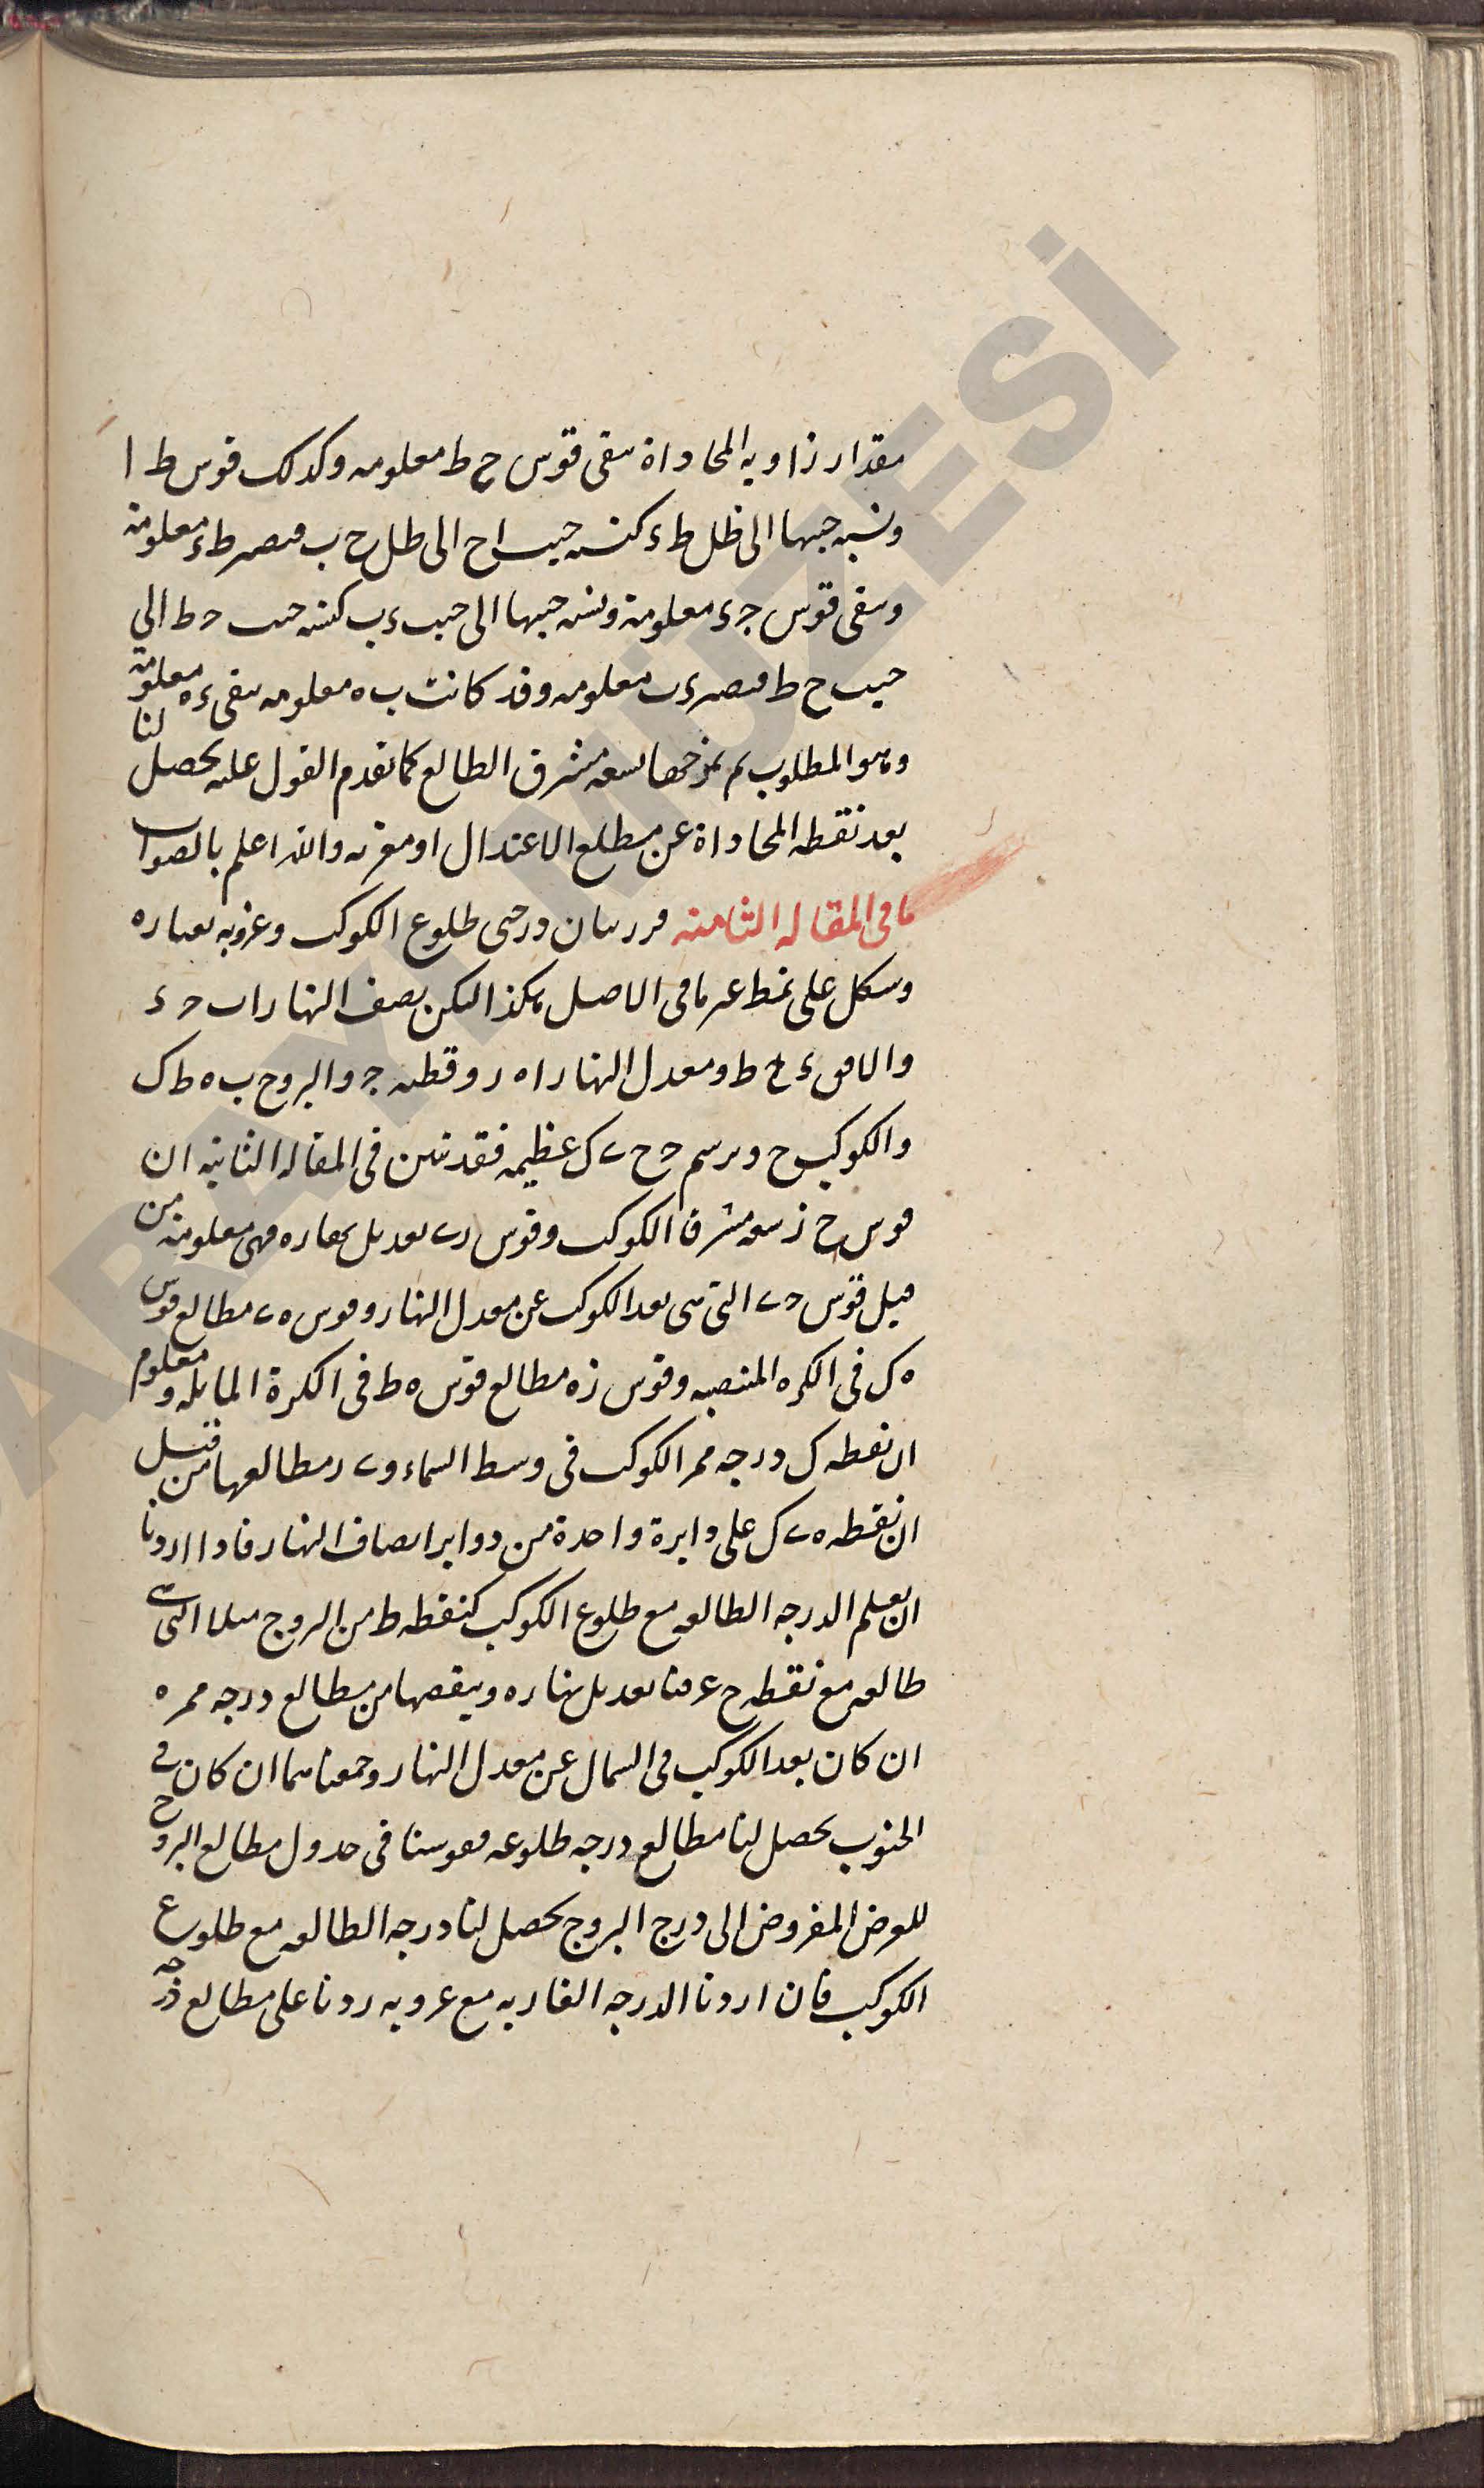 مقدار زاوية المحاذاة يبقى قوس ح ط معلومه وكذلك قوس ط ا
ونسبة جيبها الى ظل ط ء كنسبة جيب ا ح الى ظل ح ب فيصير ط ء معلومة
ويبقى قوس ج ء معلومة ونسبة جيبها الى جيب ء ب كنسبة جيب ح ط الى
جيب ح ط فيصير ء ب معلومه وقد كانت ب ه معلومه يبقى ء ه معلومة
وهو المطلوب ثم سعة مشرق الطالع كما تقدم القول عليه يحصل لنا
بعد نقطه المحاذاة عن مطلع الاعتدال او مغربه والله اعلم بالصواب
ما فى المقاله الثامنه قرر بيان درجتى طلوع الكوكب وغروبه بعباره
وشكل على نمط غير ما فى الاصل هكذا ليكن نصف النهار ا ب ح ء
والافق ء ح ط ومعدل النهار ا ه ر وقطبه ج والبروج ب ه ط ك
والكوكب ح ونرسم ح ح ى ك عظيمه فقد تبين فى المقاله الثانيه ان
قوس ح ز سعه مشرق الكوكب وقوس ر ى تعديل نهاره فهى معلومة من
قبل قوس ح ى التى هى بعد الكوكب عن معدل النهار وقوس ه ى مطالع قوس
ه ك فى الكره المنتصبه وقوس ز ه مطالع قوس ه ط فى الكرة المايله ومعلوم
ان نقطه ك درجه ممر الكوكب فى وسط السماء و ى ر مطالعها من قبل
ان نقطه ه ى ك على دايرة واحدة من دواير انصاف النهار فاذا اردنا
ان نعلم الدرجه الطالعه مع طلوع الكوكب كنقطه ط من البروج مثلا التى هى
طالعه مع نقطه ح عرفنا تعديل نهاره وينقصها من مطالع درجه ممره
ان كان بعد الكوكب فى الشمال عن معدل النهار وجمعناهما ان كان فى
الجنوب يحصل لنا مطالع درجه طلوعه فقوسنا فى جدول مطالع البروج
للعرض المفروض الى درج البروج يحصل لنا درجه الطالعه مع طلوع
الكوكب فان اردنا الدرجه الغاربه مع غروبه زدنا على مطالع درجه
SARAYI MÜZESİ